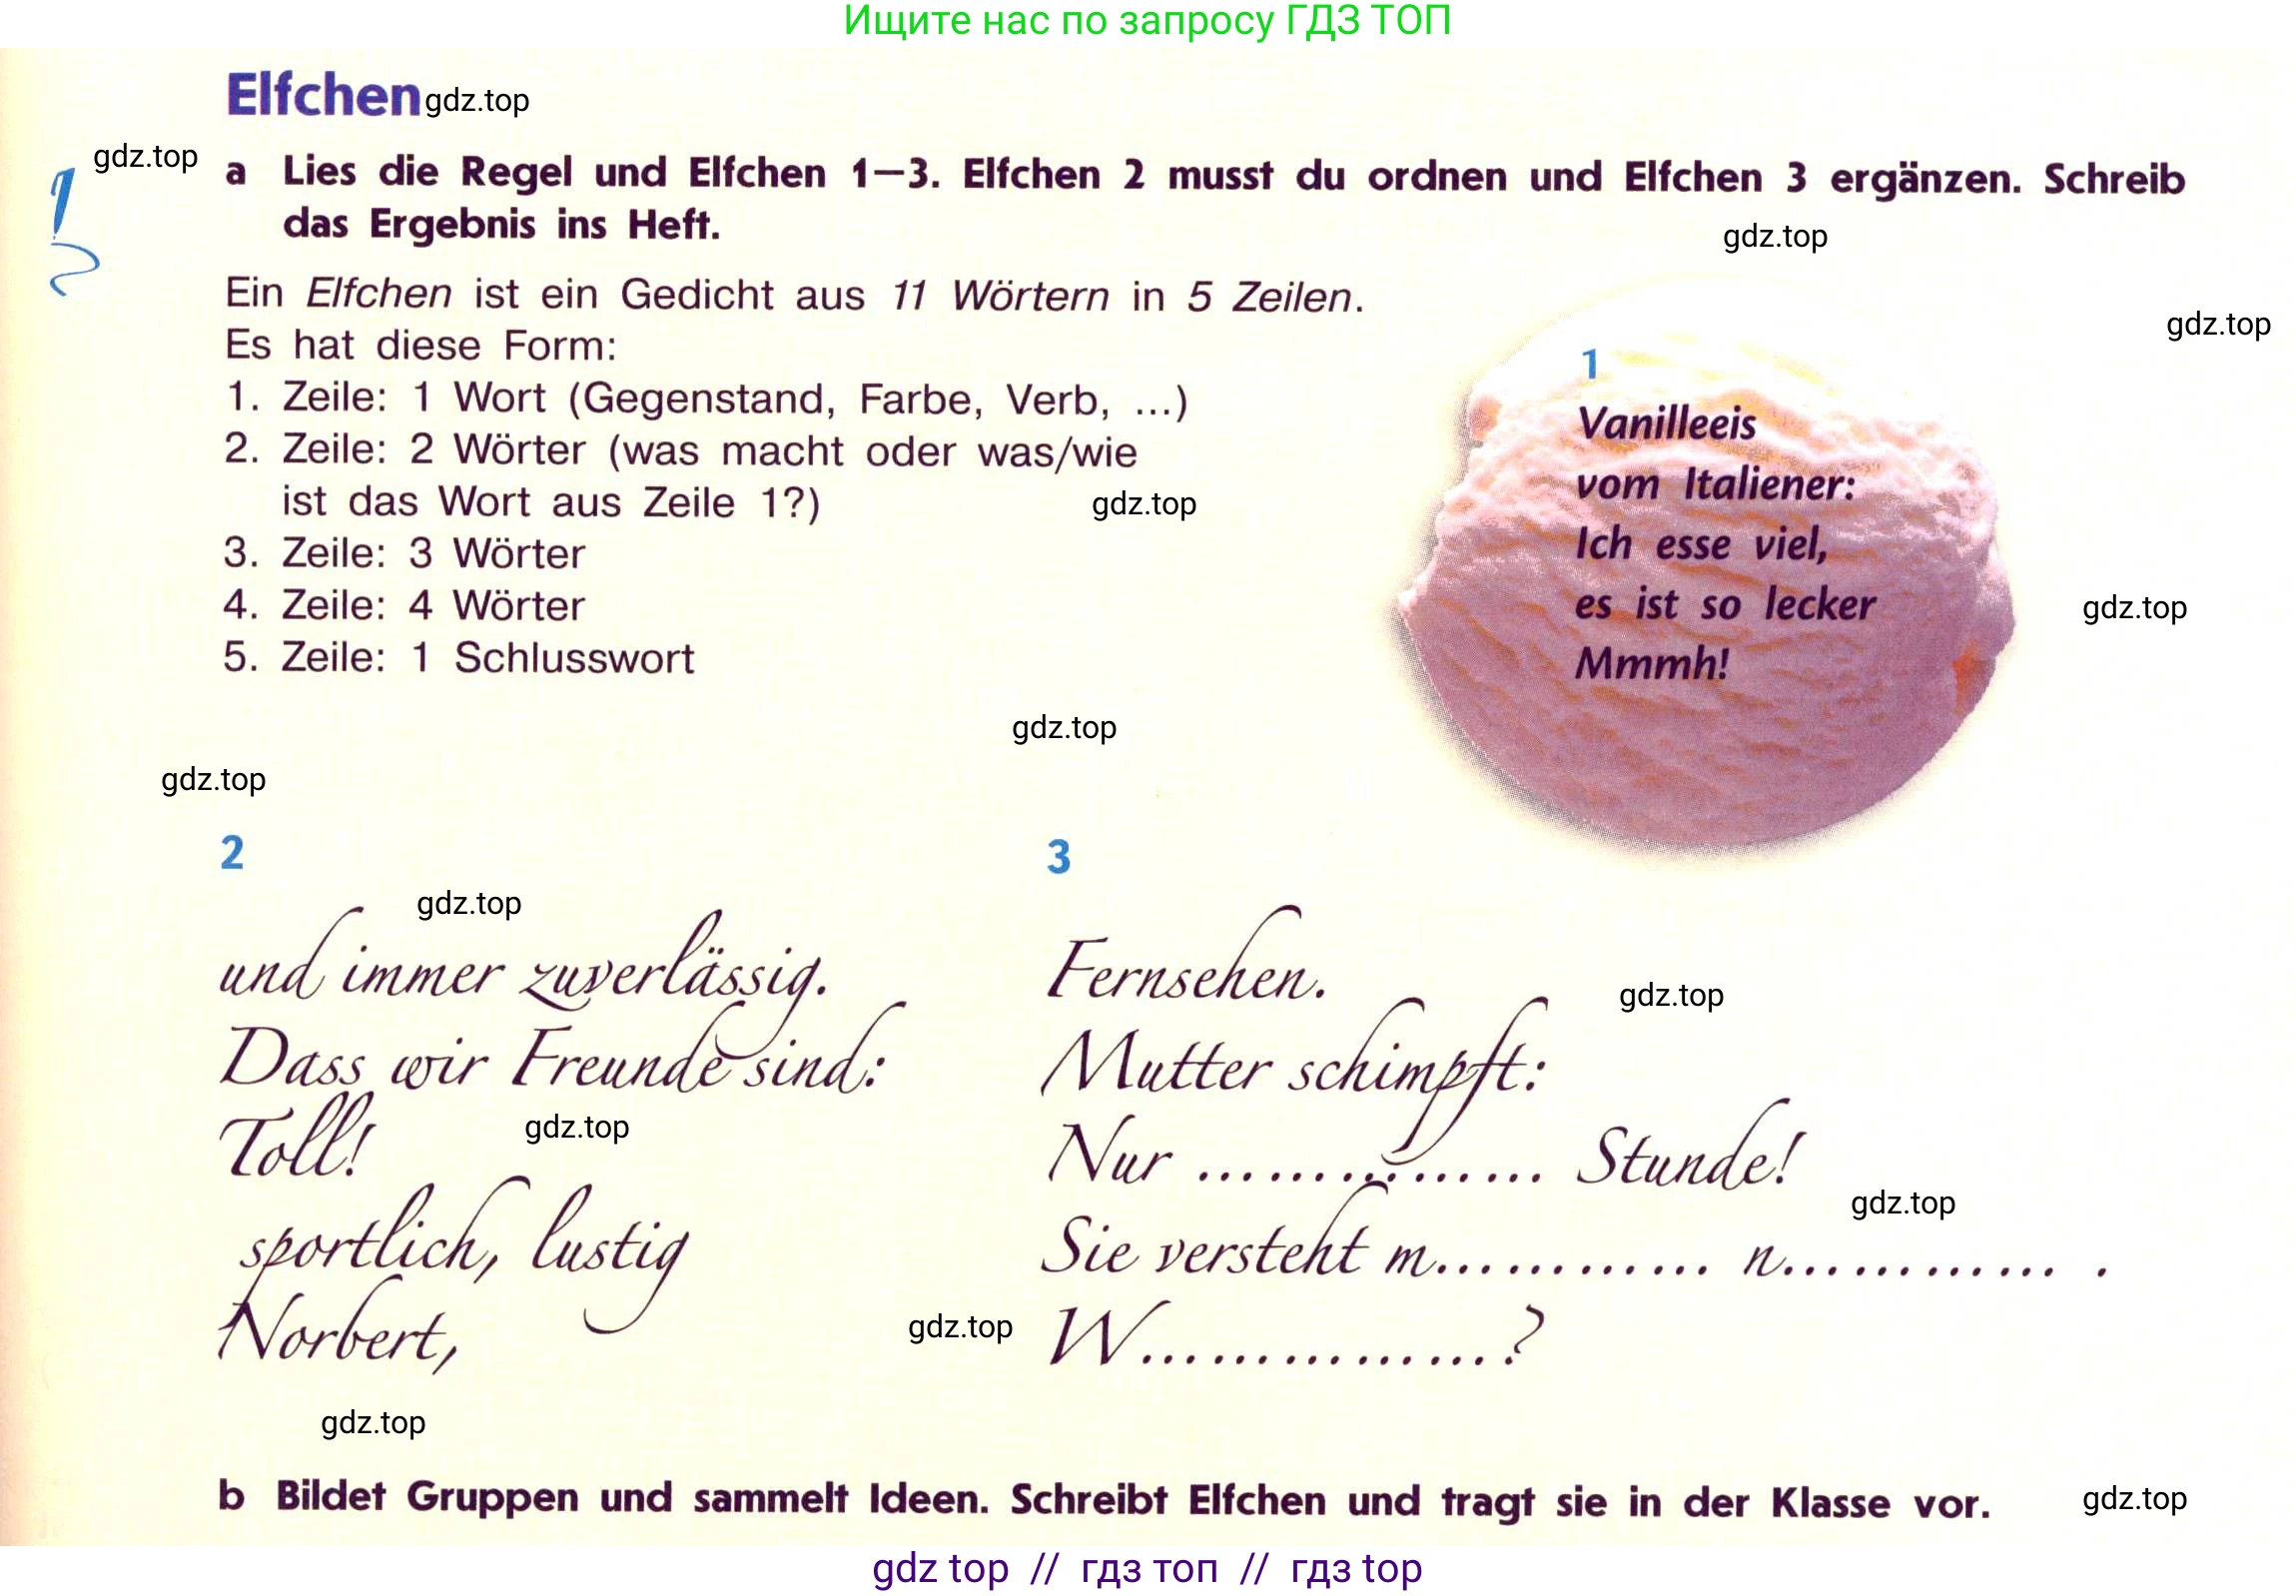 Ищите нас по запросу ГДЗ ТОП
Elfchen gdz.top
gdz.top
a Lies die Regel und Elfchen 1–3. Elfchen 2 musst du ordnen und Elfchen 3 ergänzen. Schreib
das Ergebnis ins Heft.
gdz.top
Ein Elfchen ist ein Gedicht aus 11 Wörtern in 5 Zeilen.
gdz.top
Es hat diese Form:
1. Zeile: 1 Wort (Gegenstand, Farbe, Verb, ...)
2. Zeile: 2 Wörter (was macht oder was/wie
ist das Wort aus Zeile 1?)
gdz.top
3. Zeile: 3 Wörter
4. Zeile: 4 Wörter
5. Zeile: 1 Schlusswort
1
Vanilleeis
vom Italiener:
Ich esse viel,
es ist so lecker
Mmmh!
gdz.top
gdz.top
gdz.top
2
gdz.top
und immer zuverlässig.
Dass wir Freunde sind:
Toll!
gdz.top
sportlich, lustig
Norbert,
gdz.top
gdz.top
3
Fernsehen.
gdz.top
Mutter schimpft:
Nur ............... Stunde!
gdz.top
Sie versteht m............ n............ .
W...............?
b Bildet Gruppen und sammelt Ideen. Schreibt Elfchen und tragt sie in der Klasse vor.
gdz.top
gdz top // гдз топ // гдз top